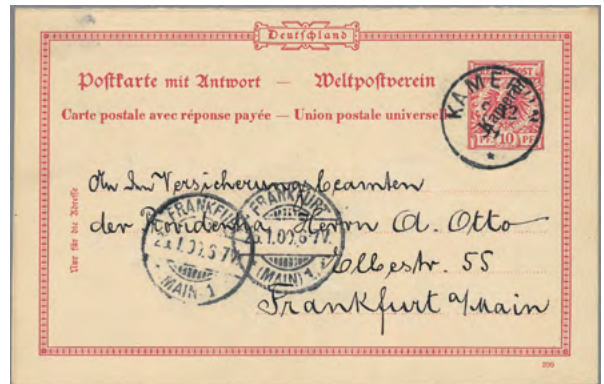 Deutschland
Postkarte mit Antwort — Weltpostverein
Carte postale avec réponse payée — Union postale universelle
KAMERUN
Kamerun
10 PF
An den Versicherungsbeamten
der Providentia Herrn A. Otto
Elbestr. 55
Frankfurt a/Main
Nur für die Adresse
FRANKFURT
(MAIN) 1
FRANKFURT
(MAIN) 1